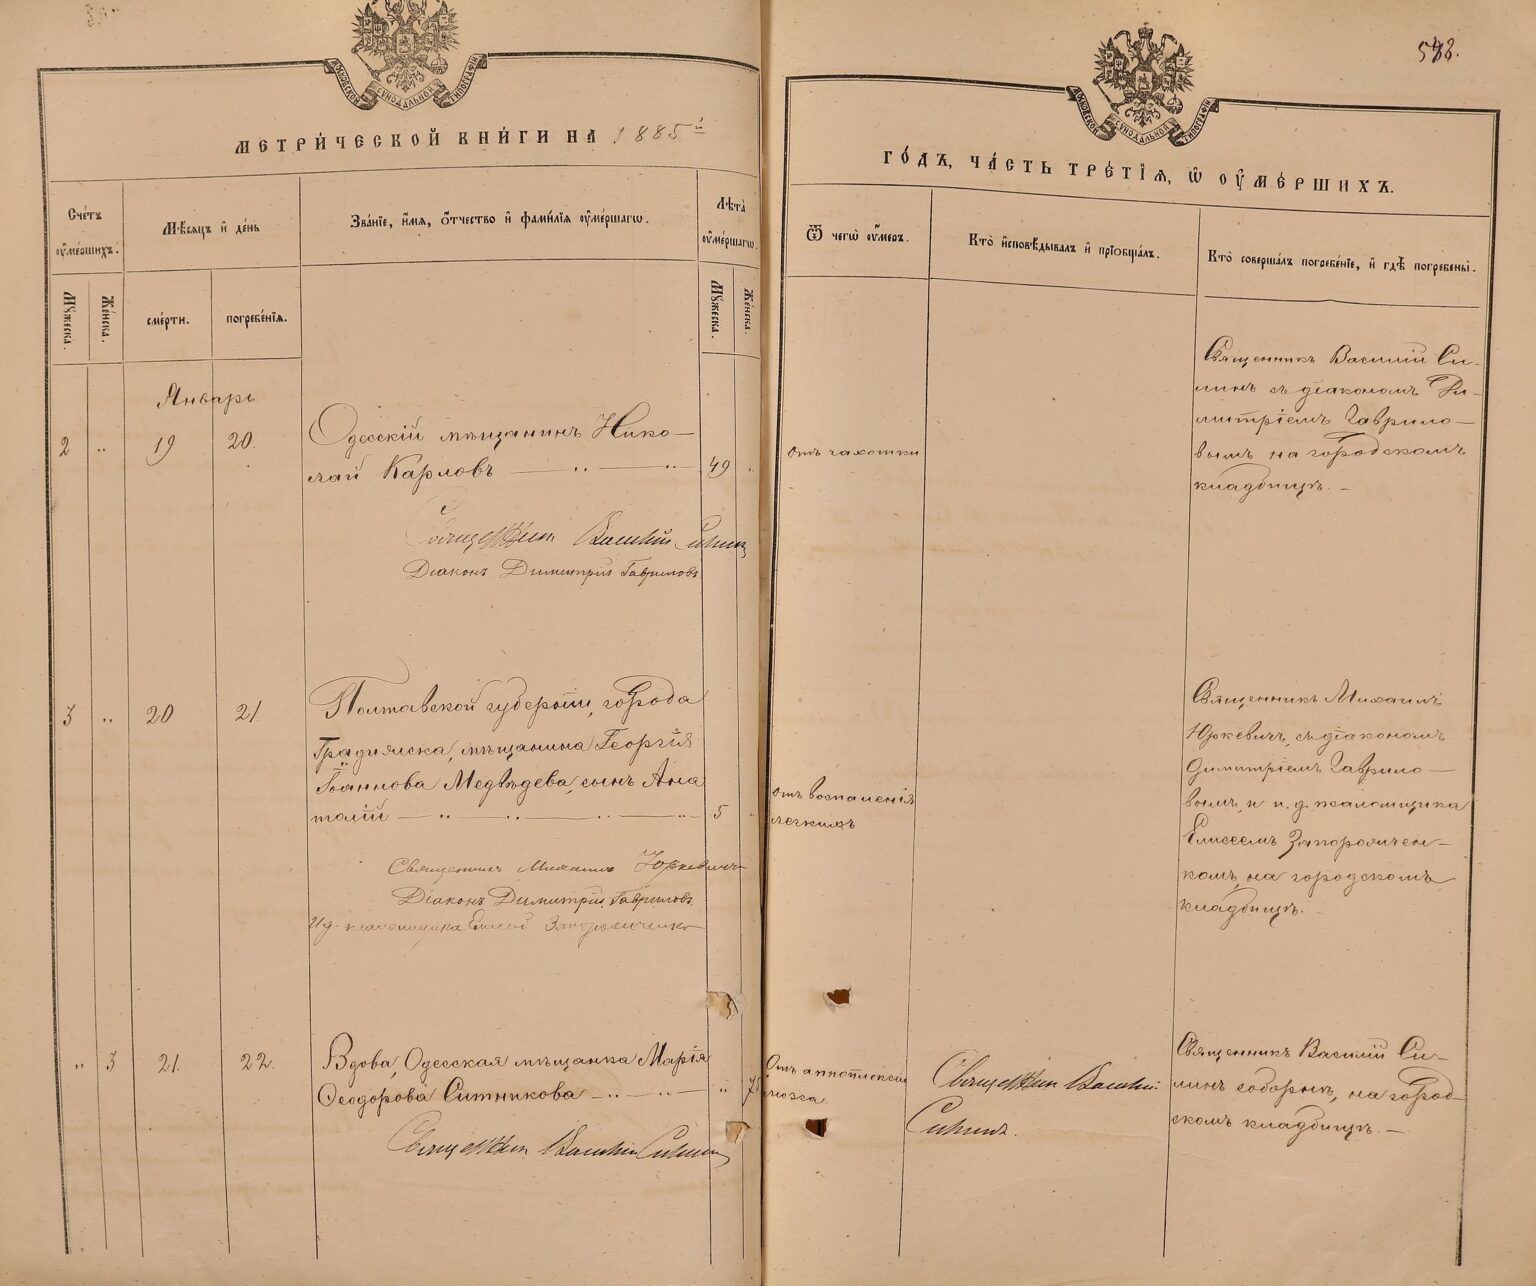 МОСКОВСКОЙ СѴНОДАЛЬНОЙ ТИПОГРАФІИ
МЕТРИ́ЧЕСКОЙ КНИ́ГИ НА 1885й
Сче́тъ ᲂу҆ме́ршихъ.
Мꙋ́жеска.
Же́нска.
Мѣ́сяцъ и҆ де́нь
сме́рти.
погребе́нїѧ.
Зва́нїе, и҆́мѧ, ѻ҆́тчество и҆ фами́лїѧ ᲂу҆ме́ршагѡ.
Лѣ́та ᲂу҆ме́ршагѡ.
Мꙋ́жеска.
Же́нска.
Январь
2 „ 19 20
Одесскій мѣщанинъ Нико—
лай Карловъ — „ — „ — 49 „
Священникъ Василій Силинъ
Діаконъ Димитрій Гавриловъ
3 „ 20 21
Полтавской губерніи, города
Градижска, мѣщанина Георгія
Іоаннова Медвѣдева, сынъ Ана
толій — „ — „ — „ — „ 5 „
Священникъ Михаилъ Юркевичъ
Діаконъ Димитрій Гавриловъ
И. д. псаломщика Елисей Запорожченко
„ 3 21. 22.
Вдова, Одесская мѣщанка Марія
Ѳеодорова Ситникова — „ — „ — „ 75
Священникъ Василій Силинъ
МОСКОВСКОЙ СѴНОДАЛЬНОЙ ТИПОГРАФІИ
ГО́ДЪ, ЧА́СТЬ ТРЕ́ТІѦ, Ѡ҆ ОУ҆МЕ́РШИХЪ.
Ѿ чегѡ̀ ᲂу҆́меръ.
Кто̀ и҆сповѣ́дывалъ и҆ прїѡбща́лъ.
Кто̀ соверша́лъ погребе́нїе, и҆ гдѣ̀ погребены̀.
отъ чахотки
Священникъ Василій Си—
линъ съ діакономъ Ди—
митріемъ Гаврило—
вымъ на городскомъ
кладбищѣ. —
отъ воспаленія
легкихъ
Священникъ Михаилъ
Юркевичъ, съ діакономъ
Димитріемъ Гаврило—
вымъ, и и. д. псаломщика
Елисеемъ Запорожчен—
комъ, на городскомъ
кладбищѣ. —
Отъ апоплексіи
мозга.
Священникъ Василій
Силинъ.
Священникъ Василій Си—
линъ соборнѣ, на город—
скомъ кладбищѣ. —